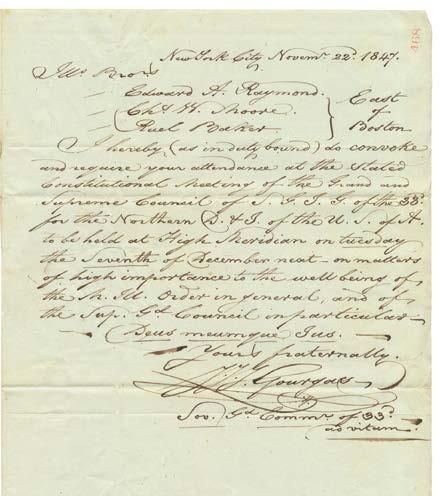 168
New York City Novemr. 22d. 1847.
Ills. Bro's
— Edward A. Raymond.
— Chs. W. Moore.
— Ruel Baker.
East
of
Boston
I hereby (as in duty bound) do convoke
and require your attendance at the Stated
Constitutional Meeting of the Grand and
Supreme Council of S. G. I. G. of the 33d.
for the Northern D. & J. of the U. S. of A.
to be held at High Meridian on tuesday
the Seventh of December next – on matters
of high importance to the well being of
the M. Ill. Order in general, and of
the Sup. Gd. Council in particular —
Deus meumque Jus. —
Yours fraternally.
J. J. J. Gourgas —
Sov. Gd. Commr. of 33d.
ad vitam.